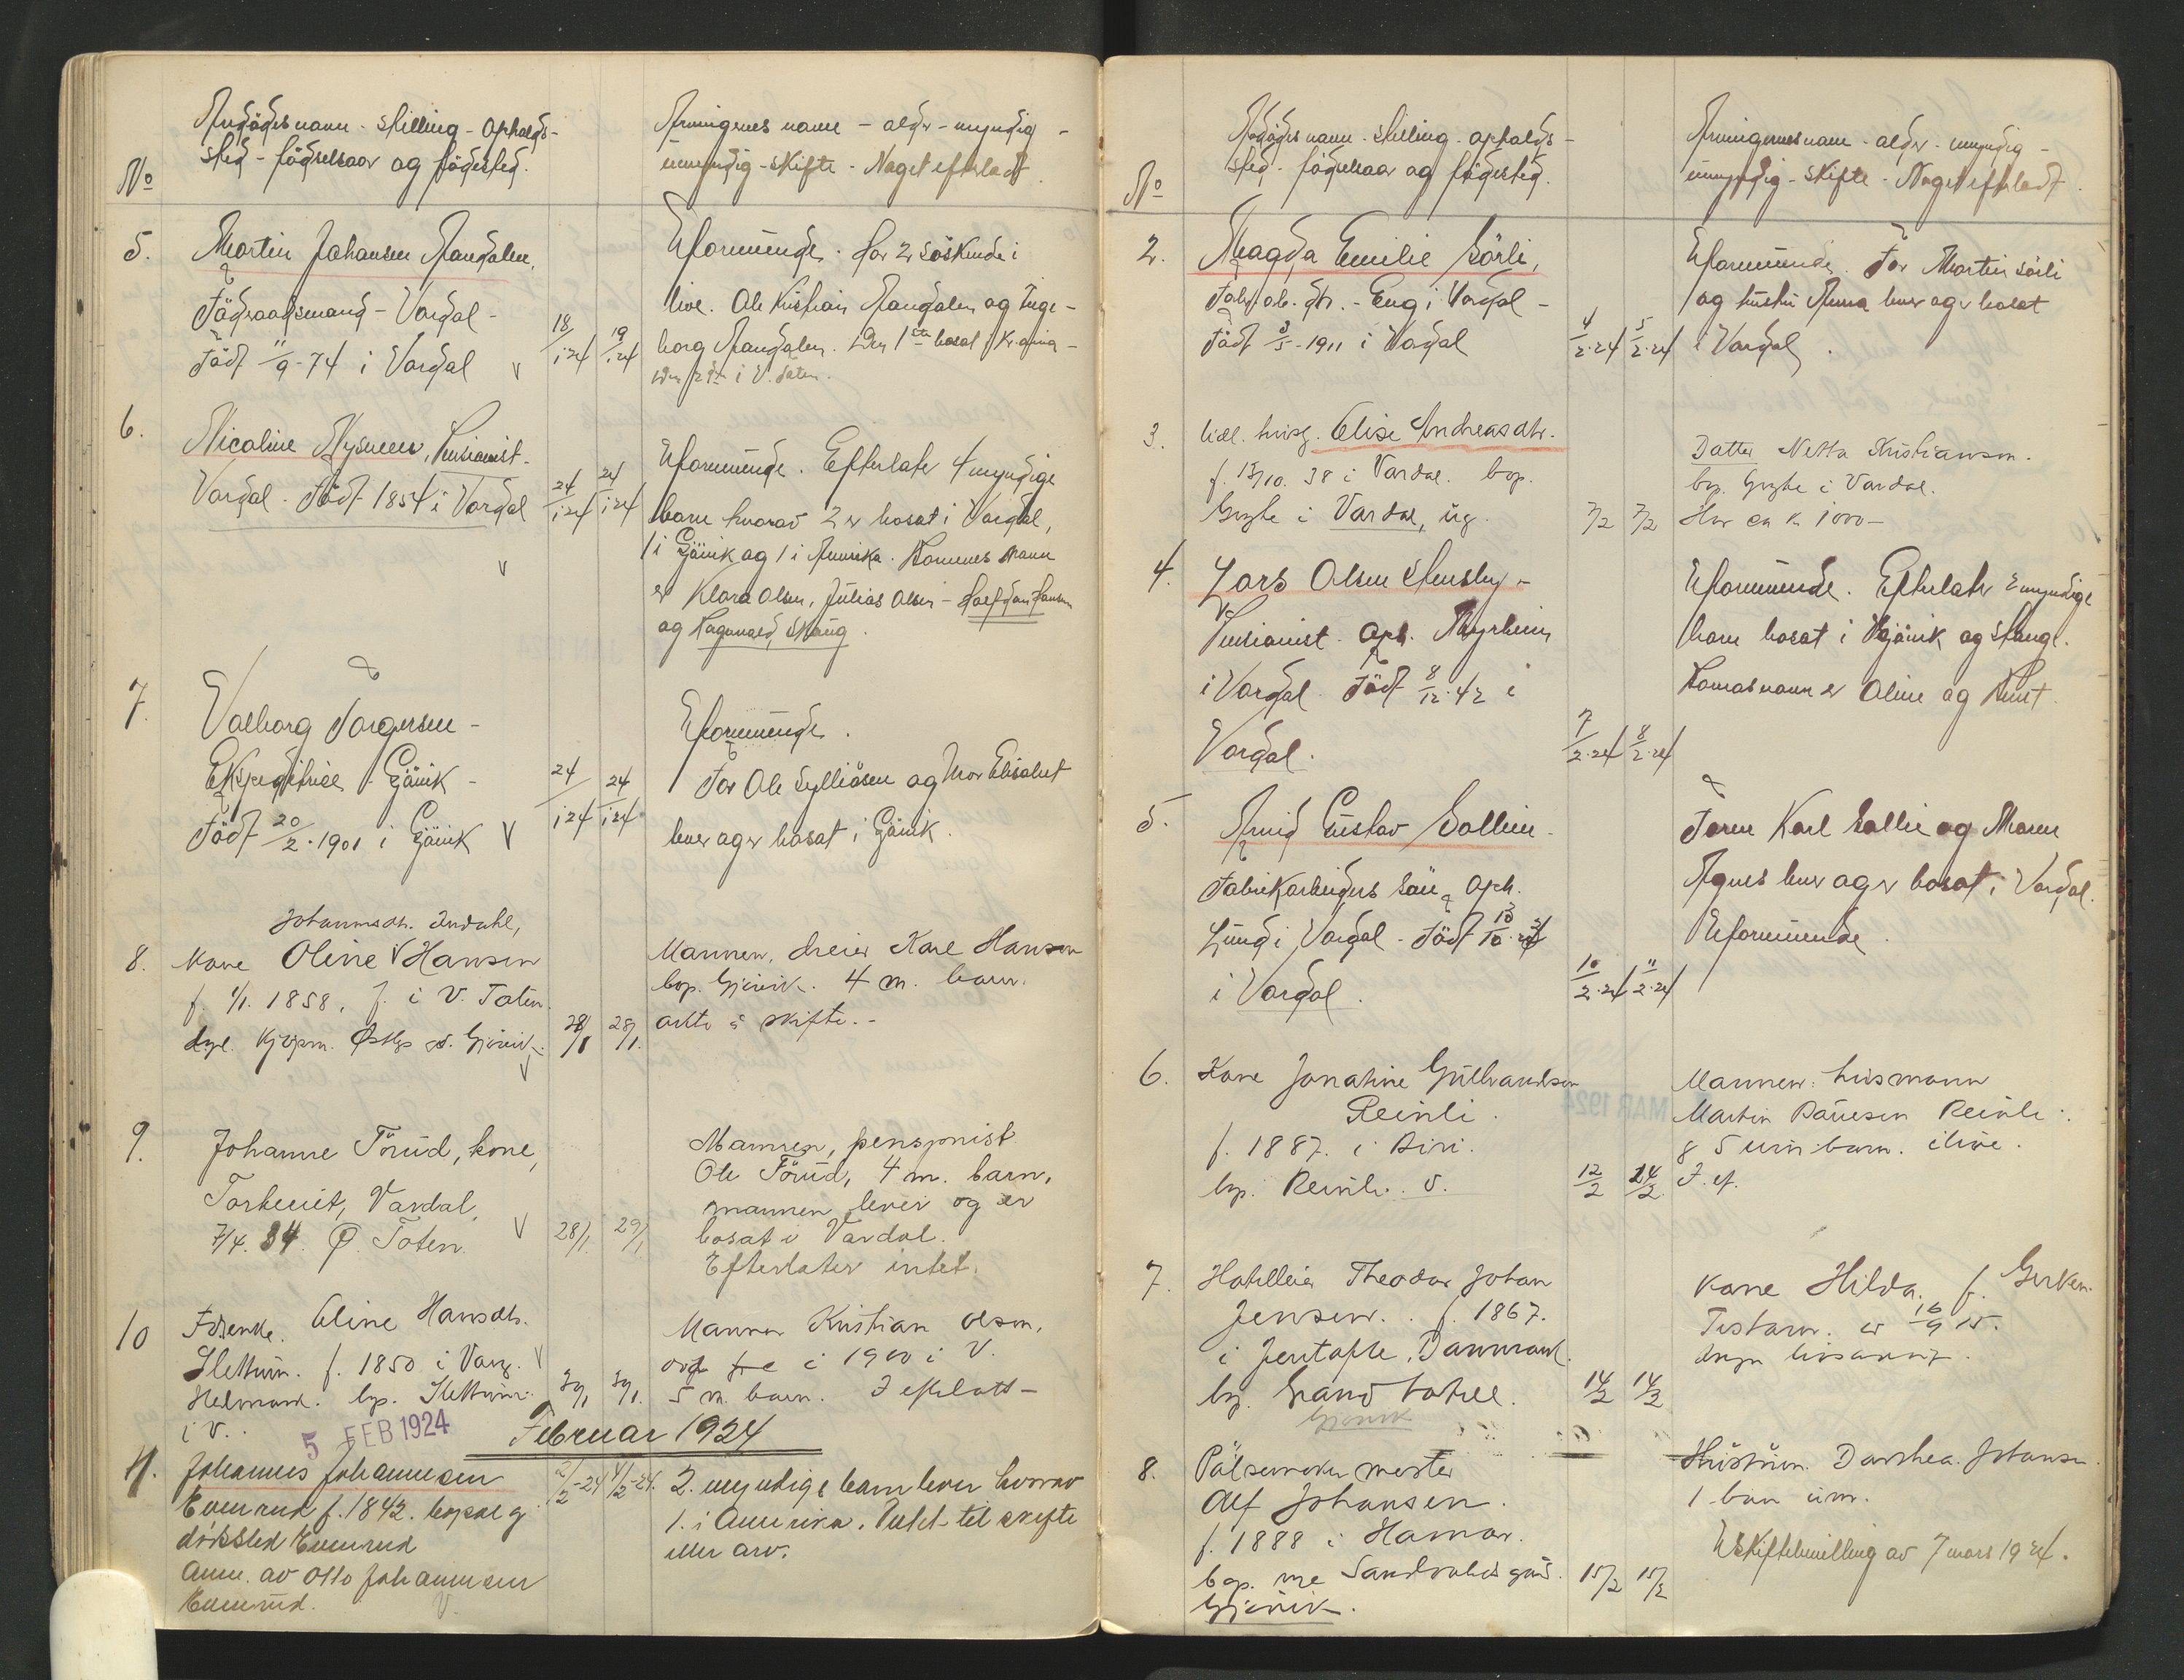 No
Avdödes navn - stilling - opholds-
sted - födselsaar og födested.
Arvingenes navn - alder - myndig -
umyndig - skifte - Noget efterladt.
5.
Martin Johansen
Födraadsmand - Vardal -
Född 11/9-74 i Vardal
18/1 24
19/1 24
Uformuende. Har 2 söskende i
live. Ole Kristian og Inge-
borg. Den 1ste bosat i Kr.ania -
Den 2den i V. Toten.
6.
Nicoline Nysveen, Pensionist -
Vardal - Född 1854 i Vardal
24/1 24
24/1 24
Uformuende. Efterlater 4 myndige
barn hvorav 2 er bosat i Vardal,
1 i Gjövik og 1 i Amerika. Barnenes navn
er Klara Olsen, Julius Olsen - Halfdan Hansen
og Ragnvald Skaug.
7.
Valborg Torgersen -
Ekspeditrice - Gjövik -
Född 20/2-1901 i Gjövik
24/1 24
24/1 24
Uformuende.
Far Ole Sylliåsen og Mor Elisabet
lever og er bosat i Gjövik.
Johannsdtr. Indahl,
8. Kone Oline Hansen
f. 1/1. 1858. f. i V. Toten.
Kjöpm. Østbys Gjövik.
28/1
28/1
Mannen, dreier Karl Hansen
bop. Gjövik. 4 m. barn.
skifte. -
9.
Johanne Törud, kone,
Vardal,
7/4. 34. Ø. Toten.
28/1.
29/1
Mannen, pensjonist
Ole Törud, 4 m. barn,
mannen lever og er
bosat i Vardal.
Efterlater intet.
10
Fdsenke. Eline Hansdtr.
Slettum. f. 1850 i Varg.
bop. Slettum.
i V.
30/1
30/1.
Mannen Kristian Olsen,
i 1900 i V.
5 m. barn. I efterlatt -
5 FEB 1924
Februar 1924
1.
Johannes Johannesen
Eumrud f. 1842. bopæl og
dödssted Eumrud
Anm. av Otto Johannesen
Eumrud.
2/2-24
4/2-24.
2. myndige barn lever hvorav
1. i Amerika. Intet til skifte
eller arv.
No
Avdödes navn - stilling - opholds -
sted - födselsaar og födested.
Arvingernes navn - alder - myndig -
umyndig - skifte - Noget efterladt.
2.
Magda Emilie Sörli,
Fabr. arb. dtr. - Eng i Vardal -
Född 3/5-1911 i Vardal
4/2-24
5/2-24
Uformuende. Far Martin Sörli
og hustru Anna lever og er bosat
i Vardal.
3.
Elise Andreasdtr.
f. 15/10. 38 i Vardal. bop.
i Vardal, ug.
7/2
7/2
Datter Netta Kristiansen.
bop. i Vardal.
Har ca kr 1000 -
4.
Lars Olsen Stensby -
Pensionist. Oph. Myrheim
i Vardal. Född 8/12-42 i
Vardal.
7/2-24
8/2-24
Uformuende. Efterlater 2 myndige
barn bosat i Gjövik og Stange.
Barnas navn er Oline og Knut.
5.
Arvid Gustav Sollien -
Fabrikarbeiders sön - Oph.
Lund i Vardal - Född
i Vardal.
10/2-24
11/2-24
Faren Karl Sollie og Moren
Agnes lever og er bosat i Vardal.
Uformuende.
6.
Kone Jonatine Gulbrandsen
Reinli.
f. 1887. i Biri.
bop. Reinli. V.
12/2
14/2
MAR 1924
Mannen: husmann
Martin Paulsen Reinli.
5 um barn. i live.
I. ef.
7.
Hotelleier Theodor Johan
Jensen. f. 1867.
i Jentofte, Danmark.
bop. Grand hotell.
Gjövik
14/2
14/2
Kone Hilda. f. Gerken.
Testam. er 16/9 15.
8.
Pölsemaker mester
Alf Johansen.
f. 1888 i Hamar.
bop. Sandvoldsgus.
Gjövik.
15/2
15/2
Hustruen. Dorthea Johansen.
1 barn um.
Uskiftebevilling av 7 mars 1924.